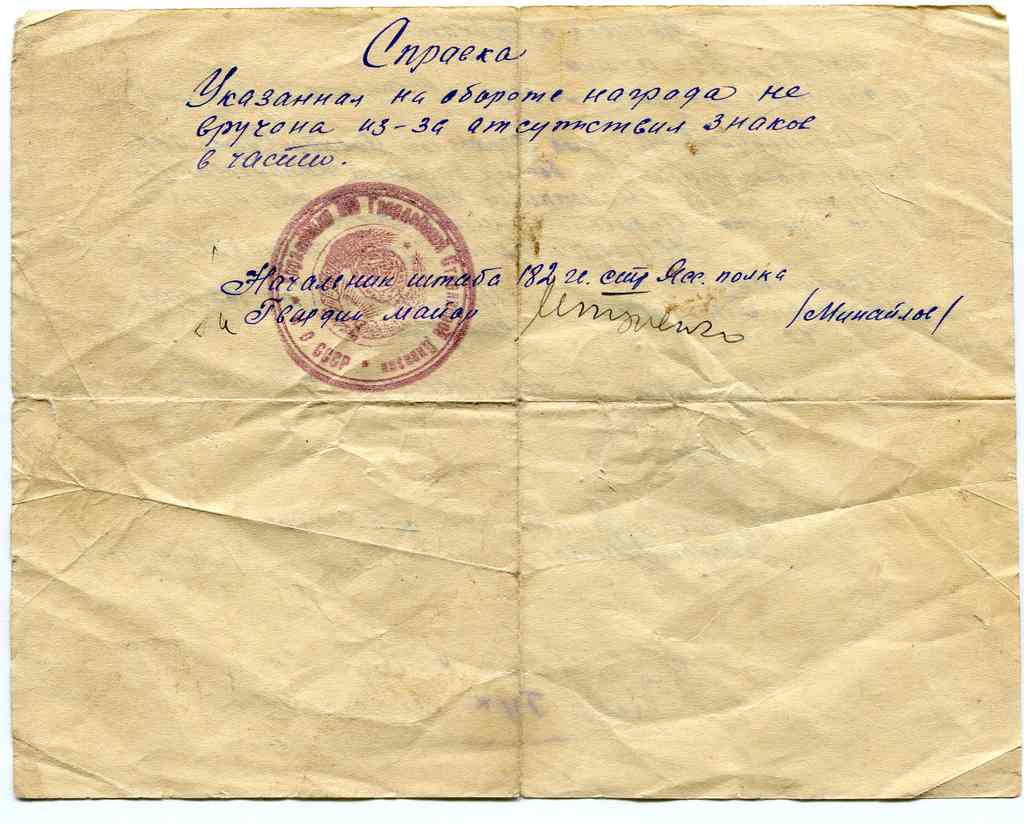 Справка
Указанная на обороте награда не
вручена из-за отсутствия знаков
в части.
Начальник штаба 182 гв. стр Яс. полка
Гвардии майор /Михайлов/
Гвардейской Стрелковой Дивизии
СССР